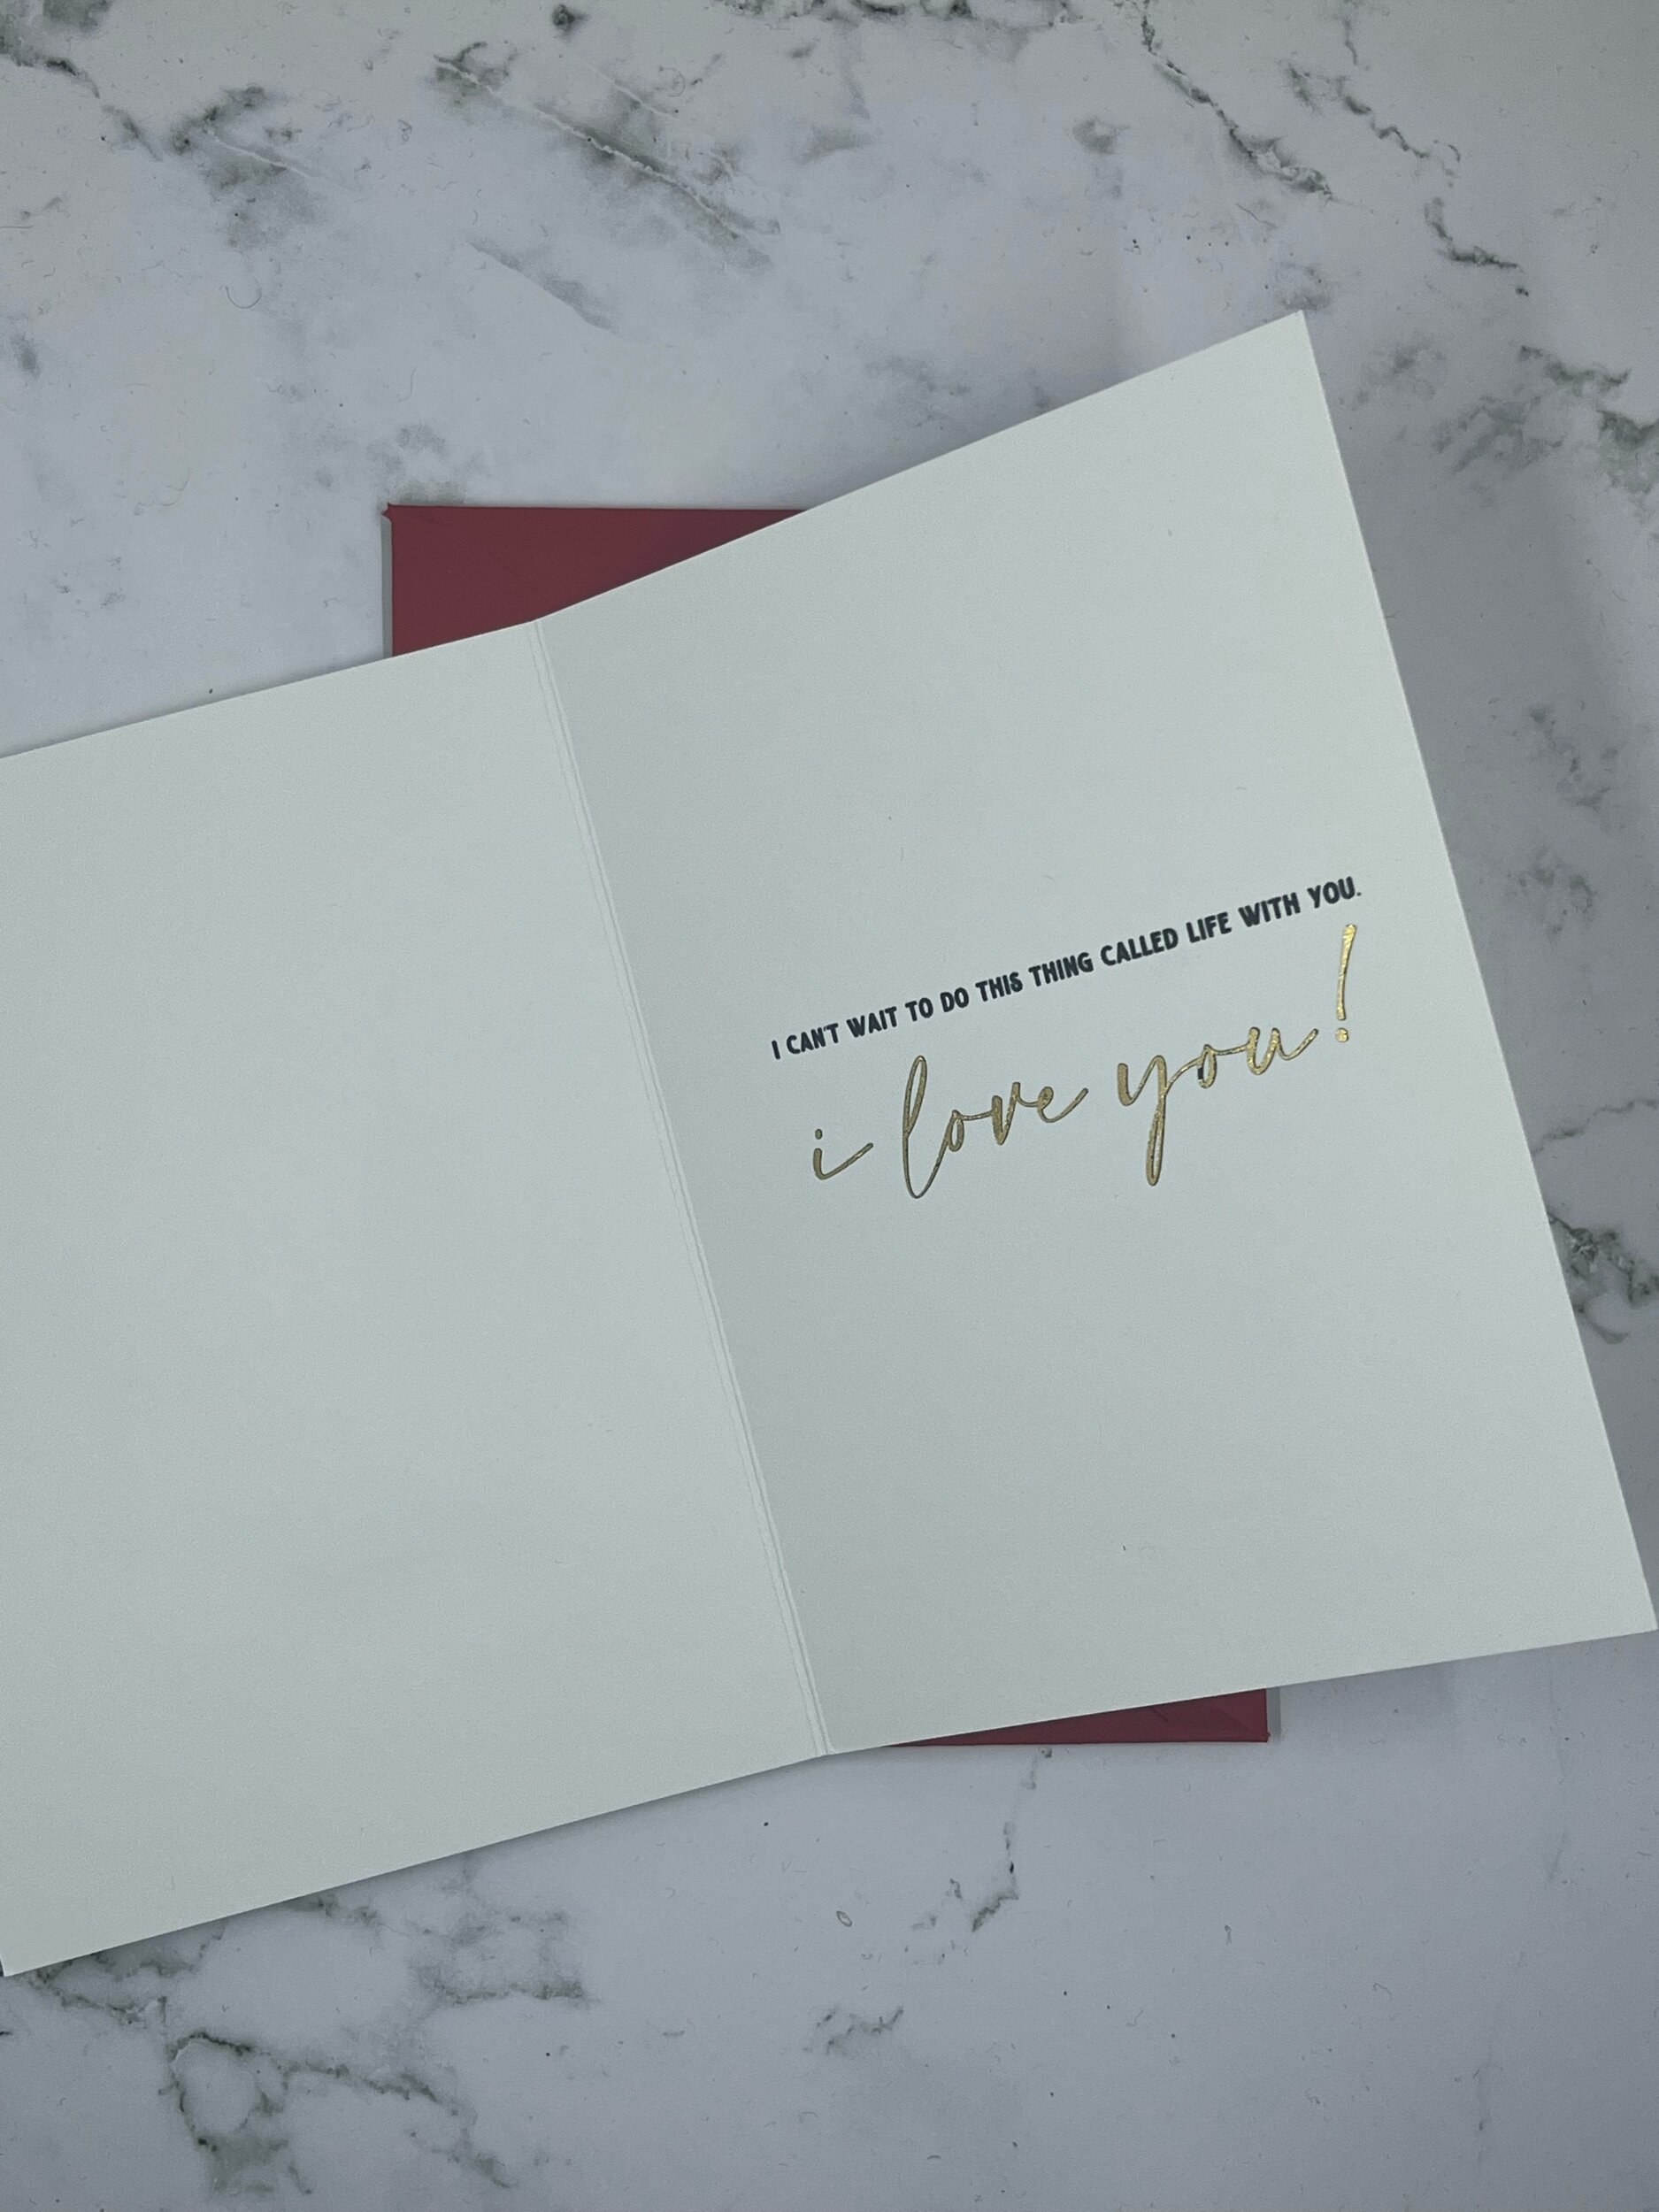 I CAN'T WAIT TO DO THIS THING CALLED LIFE WITH YOU.
i love you!